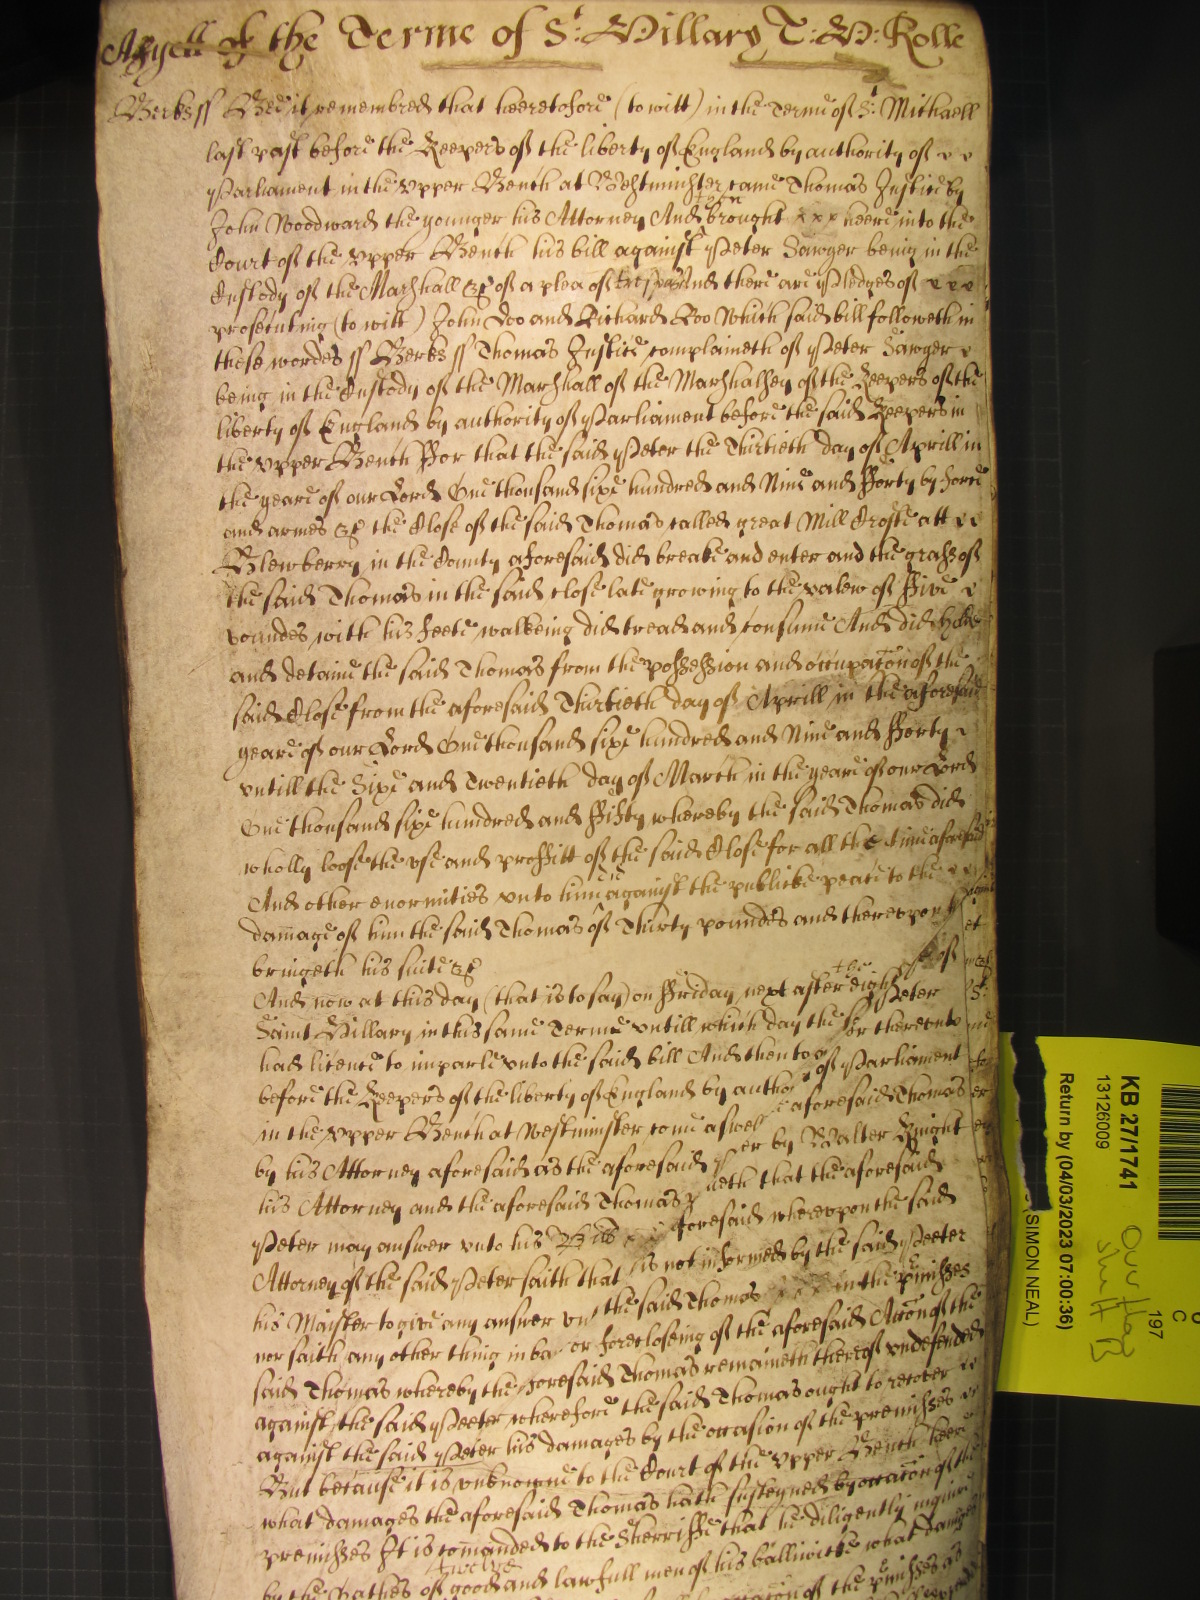 of the Terme of St: Hillary T: H: Rolle
Berks ss Bee it remembred that heeretofore (to witt) in the Terme of St: Michaell
last past before the Keepers of the liberty of England by authority of
Parliament in the Vpper Bench at Westminster came Thomas Justice by
John Woodward the younger his Attorney And brought then heere into the
Court of the Vpper Bench his bill against Peter Sawyer being in the
Custody of the Marshall &c of a plea of trespas And there are Pledges of
prosecuting (to witt) John Doo and Richard Roo Which said bill followeth in
these wordes ss Berks ss Thomas Justice complaineth of Peter Sawyer
being in the Custody of the Marshall of the Marshalsey of the Keepers of the
liberty of England by authority of Parliament before the said Keepers in
the Vpper Bench ffor that the said Peter the Thirtieth day of Aprill in
the yeare of our Lord One thousand sixe hundred and Nine and fforty by force
and armes &c the Close of the said Thomas called great Mill Crofte att
Blewberry in the County aforesaid did breake and enter and the grasse of
the said Thomas in the said close late growing to the valew of ffive
poundes with his feete walkeing did tread and consume And did
and detaine the said Thomas from the possession and occupacon of the
said Close from the aforesaid Thirtieth day of Aprill in the aforesaid
yeare of our Lord One thousand sixe hundred and Nine and fforty
vntill the Sixe and Twentieth day of March in the yeare of our Lord
One thousand sixe hundred and ffifty whereby the said Thomas did
wholly loose the vse and proffitt of the said Close for all the time aforesaid
And other enormities vnto him against the publicke peace to the
damage of him the said Thomas of Thirty poundes and therevpon
bringeth his suite &c
And now at this day (that is to say) on ffriday next after the of
Saint Hillary in this same Terme vntill which day the Peter
had licence to imparle vnto the said bill And then to thereunto
before the Keepers of the liberty of England by of Parliament
in the Vpper Bench at Westminster come aswell aforesaid Thomas
by his Attorney aforesaid as the aforesaid by Walter Knight
his Attorney and the aforesaid Thomas that the aforesaid
Peter may answer vnto his aforesaid wherevpon the said
Attorney of the said Peter saith that is not informed by the said Peeter
his Maister to give any answer the said Thomas in the pmisses
nor saith any other thing in or foreclosing of the aforesaid Accon of the
said Thomas whereby the aforesaid Thomas remaineth thereof vndefended
against the said Peeter wherefore the said Thomas ought to recover
against the said Peter his damages by the occasion of the premisses
But because it is vnknowne to the Court of the Vpper Bench heere
what damages the aforesaid Thomas hath susteyned by occacon of the
premisses It is comanded to the Sherriffe that he diligently inquire
by the oathes of twelve good and lawfull men of his balliwicke what damages
occacon of the pmisses as
KB 27/1741
13126009
Return by (04/03/2023 07:00:36)
(SIMON NEAL)
197
C